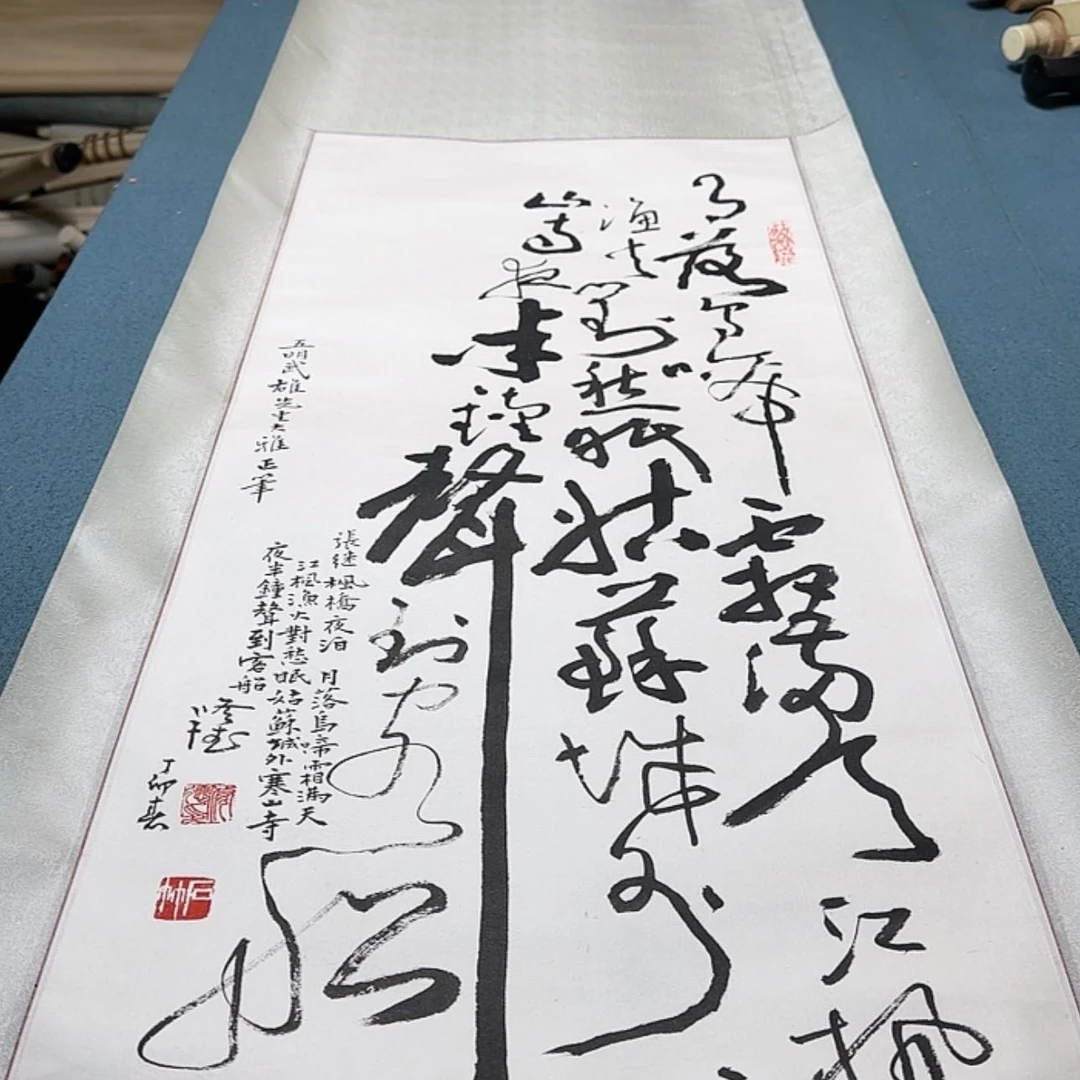 月落烏啼霜滿天江楓
漁火對愁眠姑蘇城外
山寺夜半鐘聲到客船
張继楓橋夜泊 月落烏啼霜滿天
江楓漁火對愁眠姑蘇城外寒山寺
夜半鐘聲到客船
五明武雄先生大雅正
丁卯春